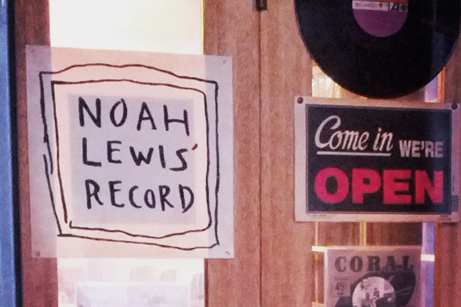 NOAH
LEWIS'
RECORD
144
Come in WE'RE
OPEN
CORAL
45